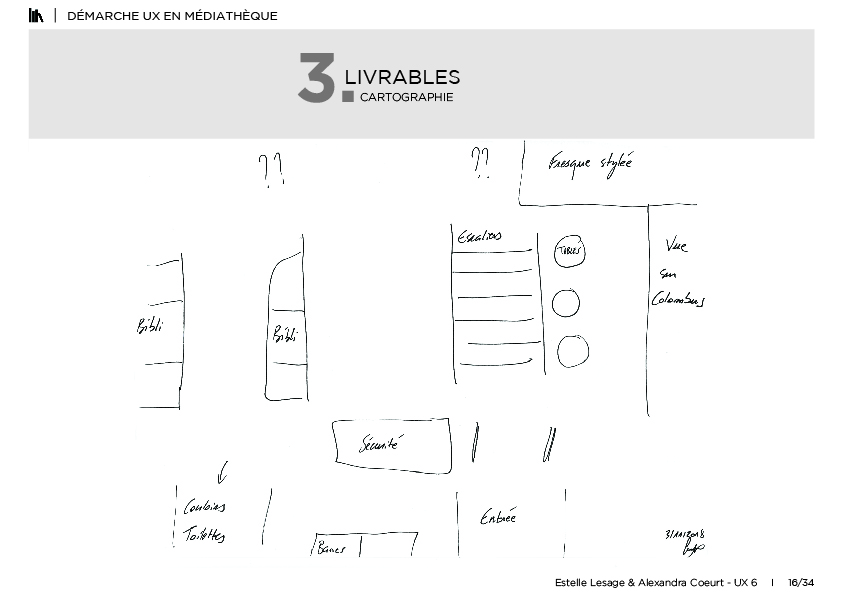 DÉMARCHE UX EN MÉDIATHÈQUE
3. LIVRABLES
CARTOGRAPHIE
??
??
Fresque stylée
Escaliers
TABLES
Vue
sur
Colombus
Bibli
Bibli
Sécurité
Couloirs
Toilettes
Bancs
Entrée
Estelle Lesage & Alexandra Coeurt - UX 6 | 16/34